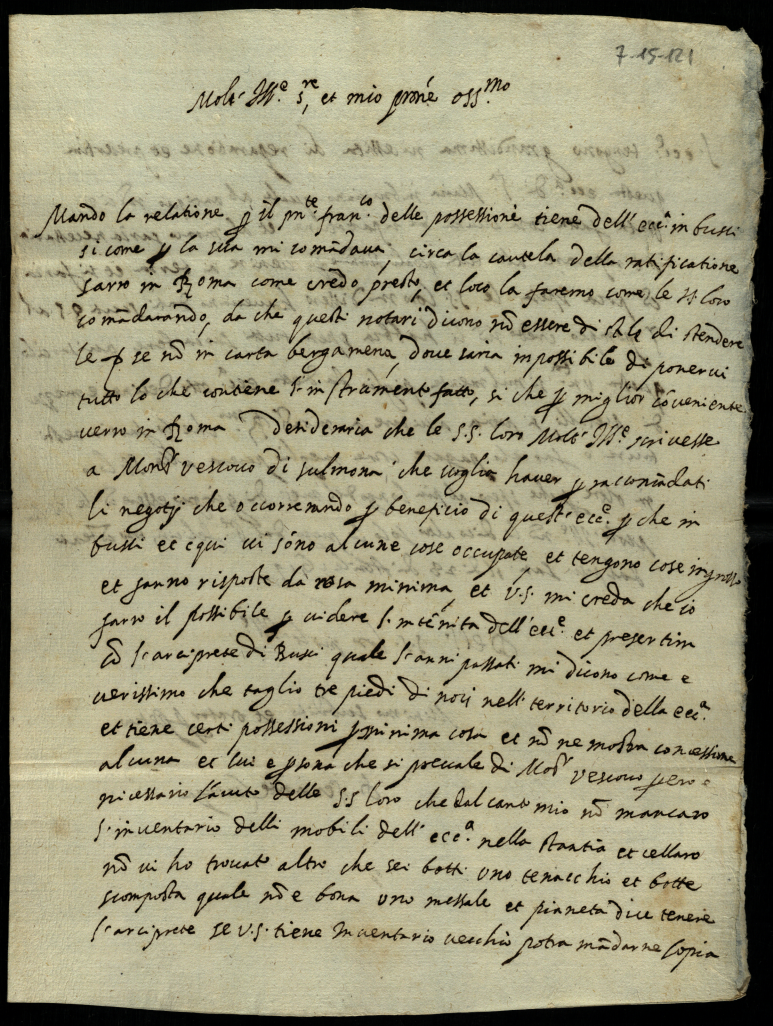 7-15-121
Molt' Ill.e s.re et mio prõne oss.mo
Mando la relatione p il pnte franco delle possessione tiene dell' ecc.a in bussi
si come p la sua mi comãdava, circa la cautela della ratificatione
sarro in Roma come credo presto, et loco la faremo come le ss loro
comãdarando, da che questi notari dicono nõ essere di stile di stendere
le p se nõ in carta bergamena, dove saria impossibile di ponervi
tutto lo che contiene l'instrumento fatto, si che p miglior cõveniente
verro in Roma desideraria che le S.S. loro Molt' Ill.e scrivesse
a Mons.r vescovo di sulmona che voglia haver p racomãdati
li negotij che occorrerando p beneficio di quest' ecc.e p che in
bussi et cqui vi sono alcune cose occupate et tengono cose ingrosso
et fanno risposte da cosa minima, et V.S. mi creda che io
farro il possibile p videre l'intẽrita dell' ecc.e et presertim
cõ l'arciprete di Bussi quale l'anni passati mi dicono come e
verissimo che taglio tre piedi di noci nell' territorio della ecc.a
et tiene certi possessioni p minima cosa et nõ ne mostra concessione
alcuna et lui e psona che si prevale di Mons.r vescovo pero e
necessario l'aiuto delle S.S. loro che dal canto mio nõ mancaro
l'inventario delli mobili dell' ecc.a nella stantia et cellaro
nõ vi ho trovato altro che sei botti uno tenacchio et botte
scomposta quale nõ e bona uno messale et pianeta dice tenere
l'arciprete se V.S. tiene Inventario vecchio potra mãdarne copia